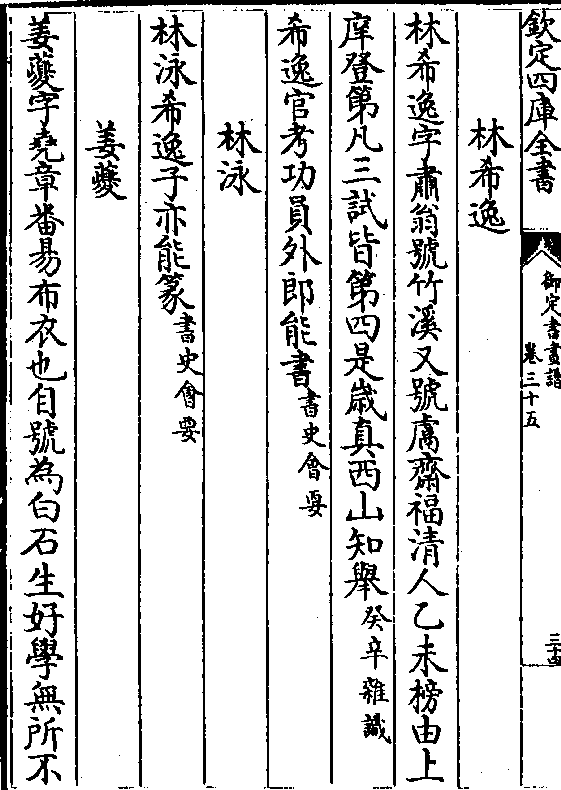 欽定四庫全書
御定書畫譜
卷三十五
三十四
林希逸
林希逸字肅翁號竹溪又號鬳齋福清人乙未榜由上
庠登第凡三試皆第四是歲真西山知舉癸辛雜識
希逸官考功員外郎能書書史會要
林泳
林泳希逸子亦能篆書史會要
姜夔
姜夔字堯章番易布衣也自號為白石生好學無所不